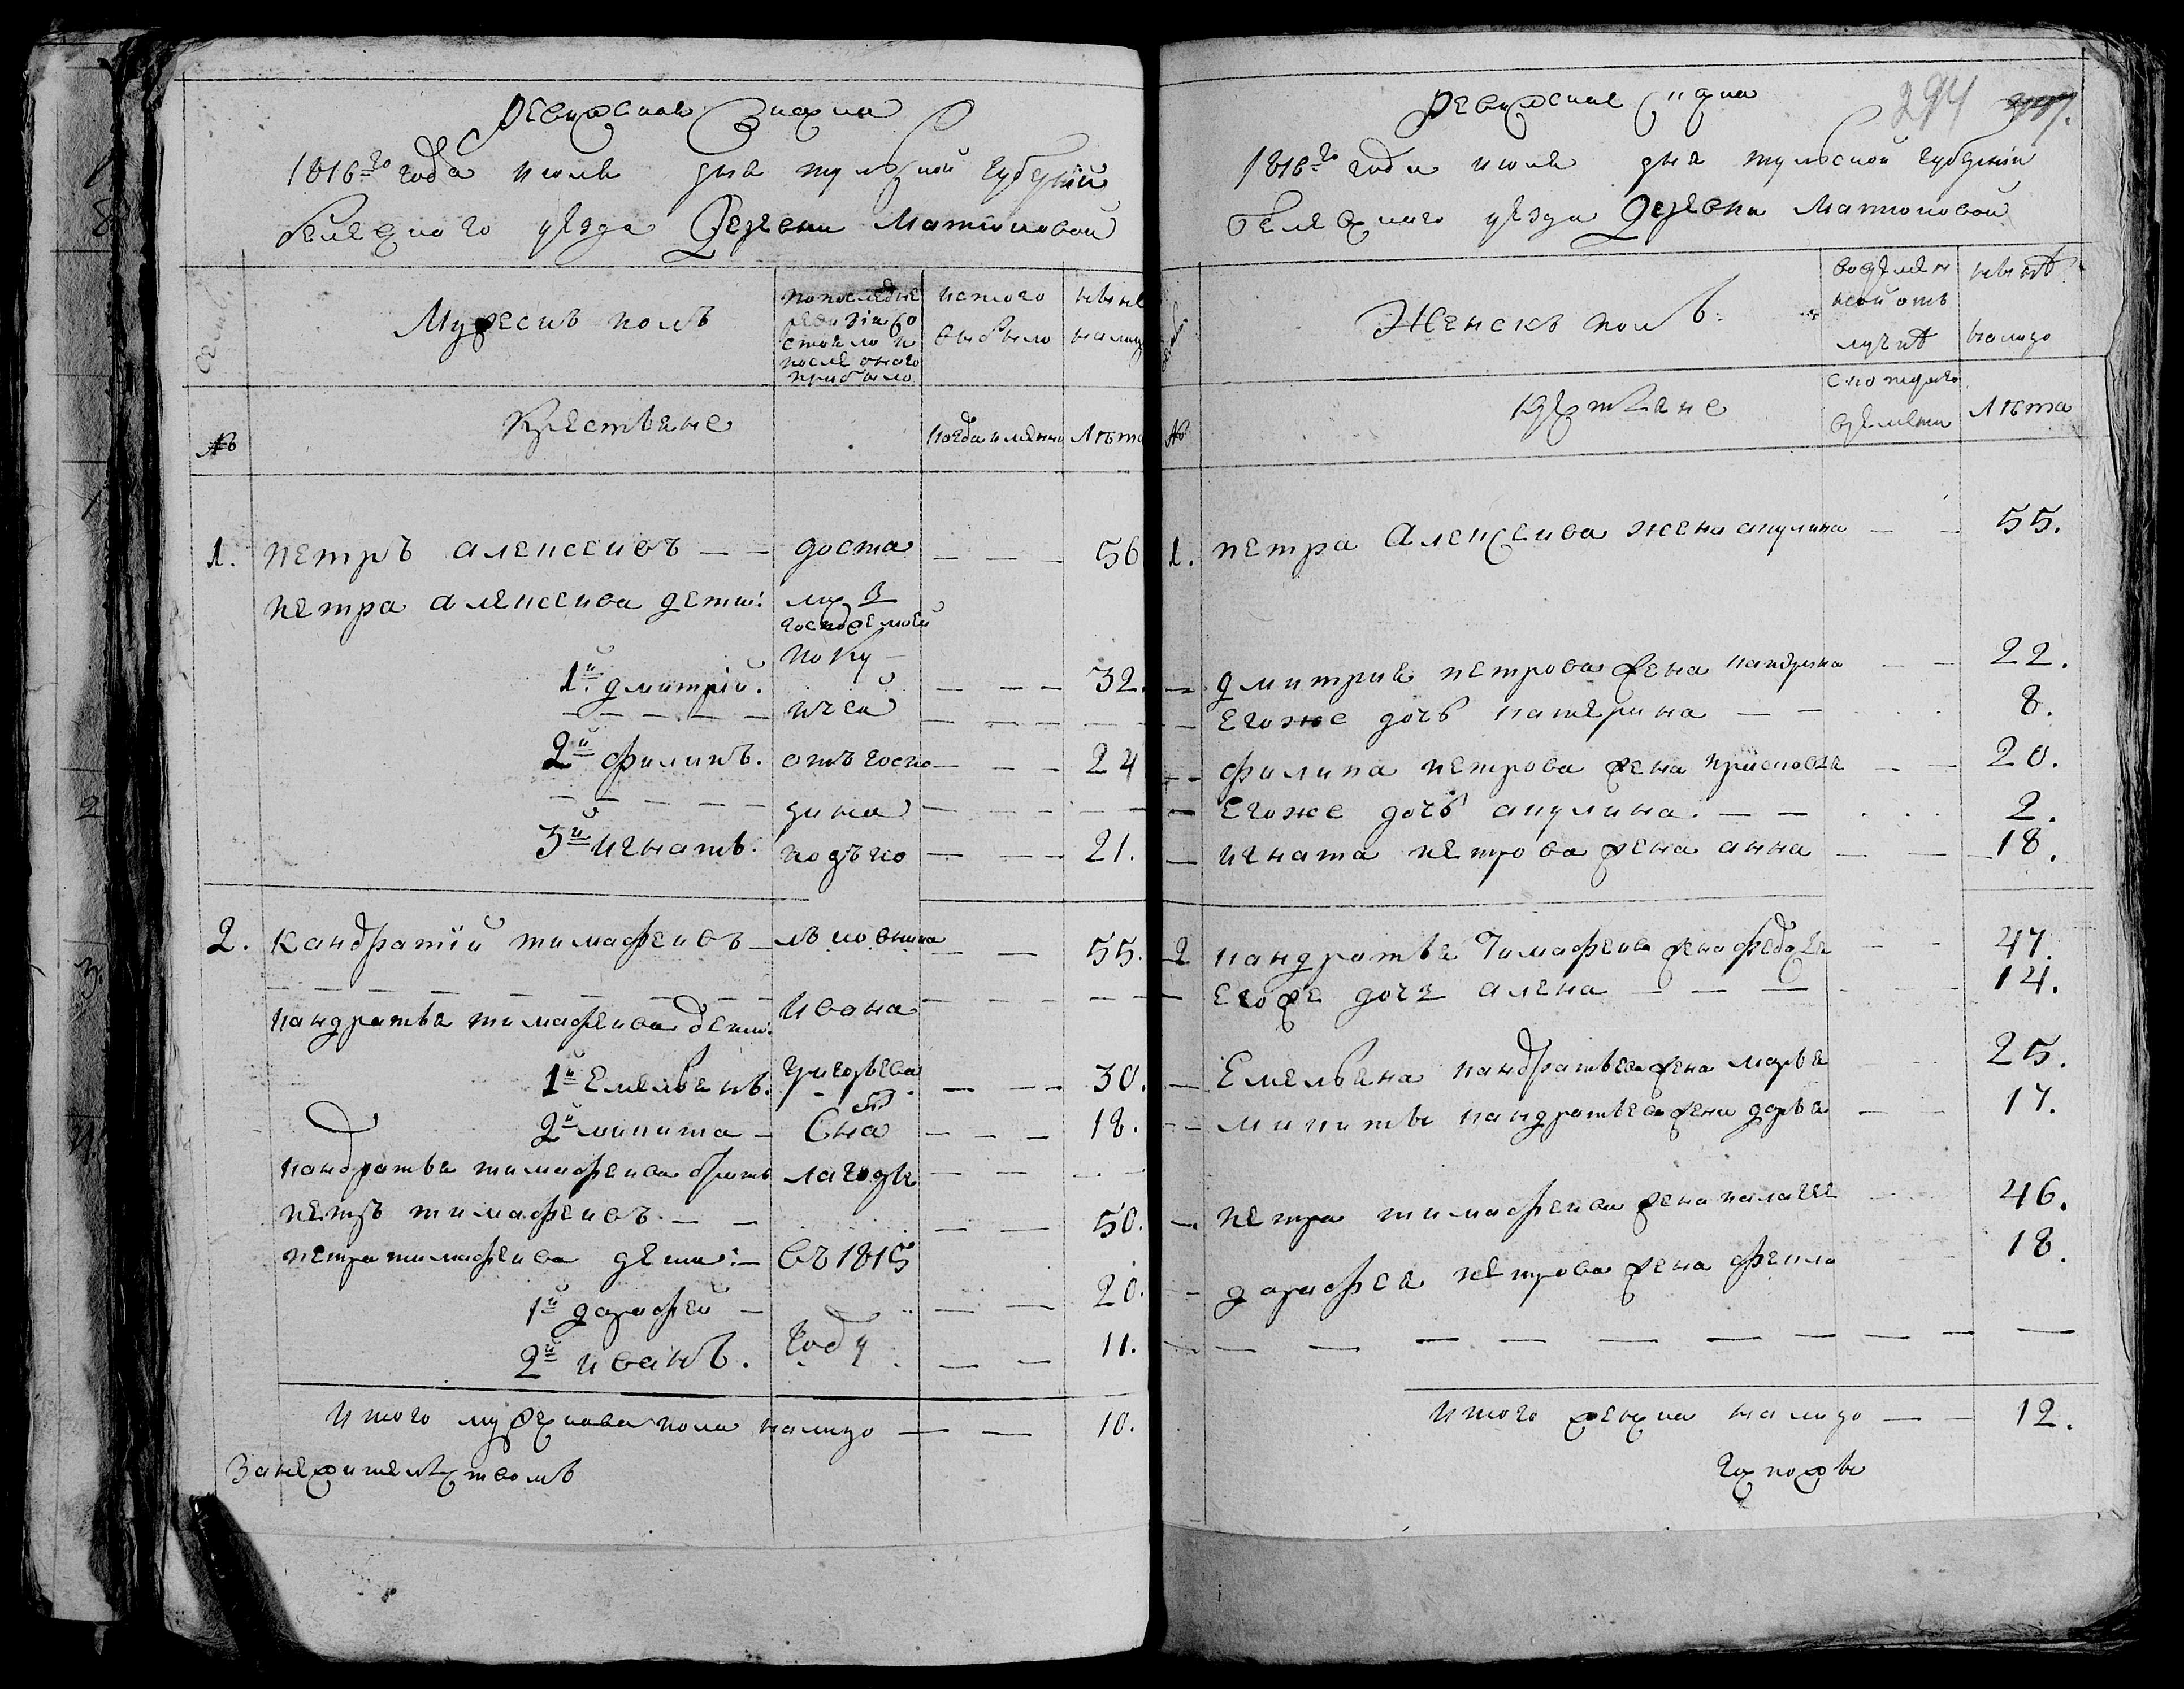 Ревижская Скаска
1816го года июля дня тульской губернии
белевского уезда Деревни Матюковой
Мужескъ полъ
по последней
ревизии со
стояло и
после оного
прибыло
ис того
выбыло
ныне
налицо
№
Крестьяне
когда именно
Лета
1. петръ алексеивъ — — доста — — — 56
петра алексеива дети: лис
госпоже моей
по ку
1й дмитрий. — — — 32.
пчей
2й филипъ. отъ госпо — — — 24
дина
3й игнатъ. подъпо — — — 21.
2. кандратий тимафеивъ — лковника — — 55.
кандратья тимафеива дети. ивана
1й Емельянъ. григорьева — — — 30.
2й микита — Сна — — — 18.
кандратья тимафеива братъ
петръ тимафеивъ. — — — — 50.
петра тимафеива дети: — въ 1815
1й дарафей — — — 20.
2й иванъ. году — — 11.
итого мужескова пола налицо — — 10.
294
Ревижская Скаска
1816го года июля дня тульской губернии
белевского уезда Деревни Матюковой
Женскъ полъ.
во времен
ной отъ
лучке
ныне
налицо
№
крестьяне
с которого
времени
Лета
1. петра Алексеива жена акулина — — 55.
— дмитрия петрова жена катерина — — 22.
— Егоже дочь катерина — — 8.
— филипа петрова жена — — 20.
— Егоже дочь акулина. — — 2.
— игната петрова жена анна — — 18.
2 кандратья Тимафеива жена федосья — — 47.
Егоже дочь алена — — — 14.
— Емельяна кандратьева жена марья 25.
— микиты кандратьева жена дарья — 17.
— петра тимафеива жена палагея 46.
— дарафея петрова жена фекла 18.
— — — — — — — — —
итого женска налицо — — 12.